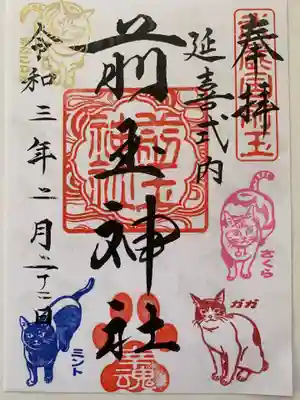 奉拝
延喜式内
前玉神社
令和三年二月二十二日
前玉
神社
さくら
ガガ
ミント
魂